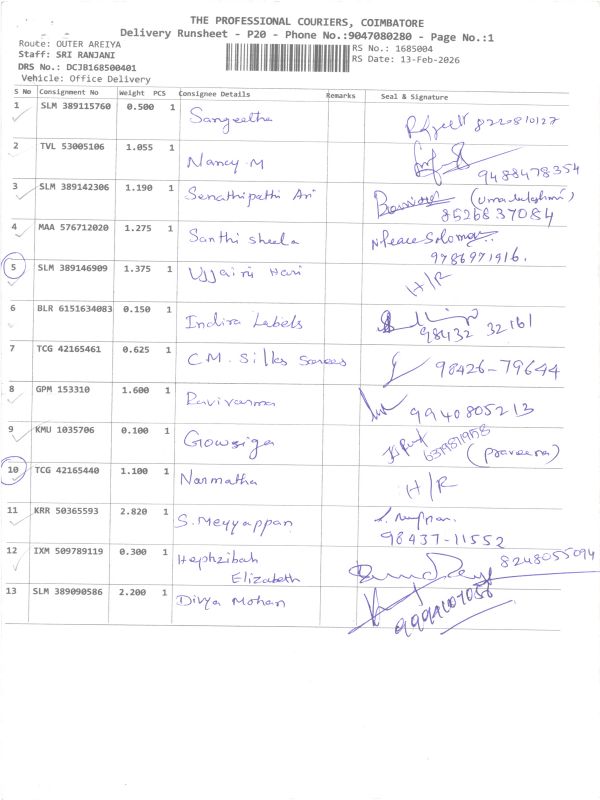 THE PROFESSIONAL COURIERS, COIMBATORE
Delivery Runsheet - P20 - Phone No.:9047080280 - Page No.:1
Route: OUTER AREIYA
RS No.: 1685004
Staff: SRI RANJANI
RS Date: 13-Feb-2026
DRS No.: DCJB168500401
Vehicle: Office Delivery
S No Consignment No Weight PCS Consignee Details Remarks Seal & Signature
1 SLM 389115760 0.500 1 Sangeetha 8220810127
2 TVL 53005106 1.055 1 Nancy.M
9488478354
3 SLM 389142306 1.190 1 Senathipathi Ari (Umamaheshwari)
8526837084
4 MAA 576712020 1.275 1 Santhi sheela N.Peace Solomon
9786971916.
5 SLM 389146909 1.375 1 Ujjaini Hari H/R
6 BLR 6151634083 0.150 1 Indira Labels
98432 32161
7 TCG 42165461 0.625 1 C.M. Silks Sarees 98426-79644
8 GPM 153310 1.600 1 Ravivarma 9940805213
9 KMU 1035706 0.100 1 Gowsiga (Praveena)
10 TCG 42165440 1.100 1 Narmatha H/R
11 KRR 50365593 2.820 1 S.Meyyappan
98437-11552
12 IXM 509789119 0.300 1 Hephzibah 8248055094
Elizabeth
13 SLM 389090586 2.200 1 Divya Mohan